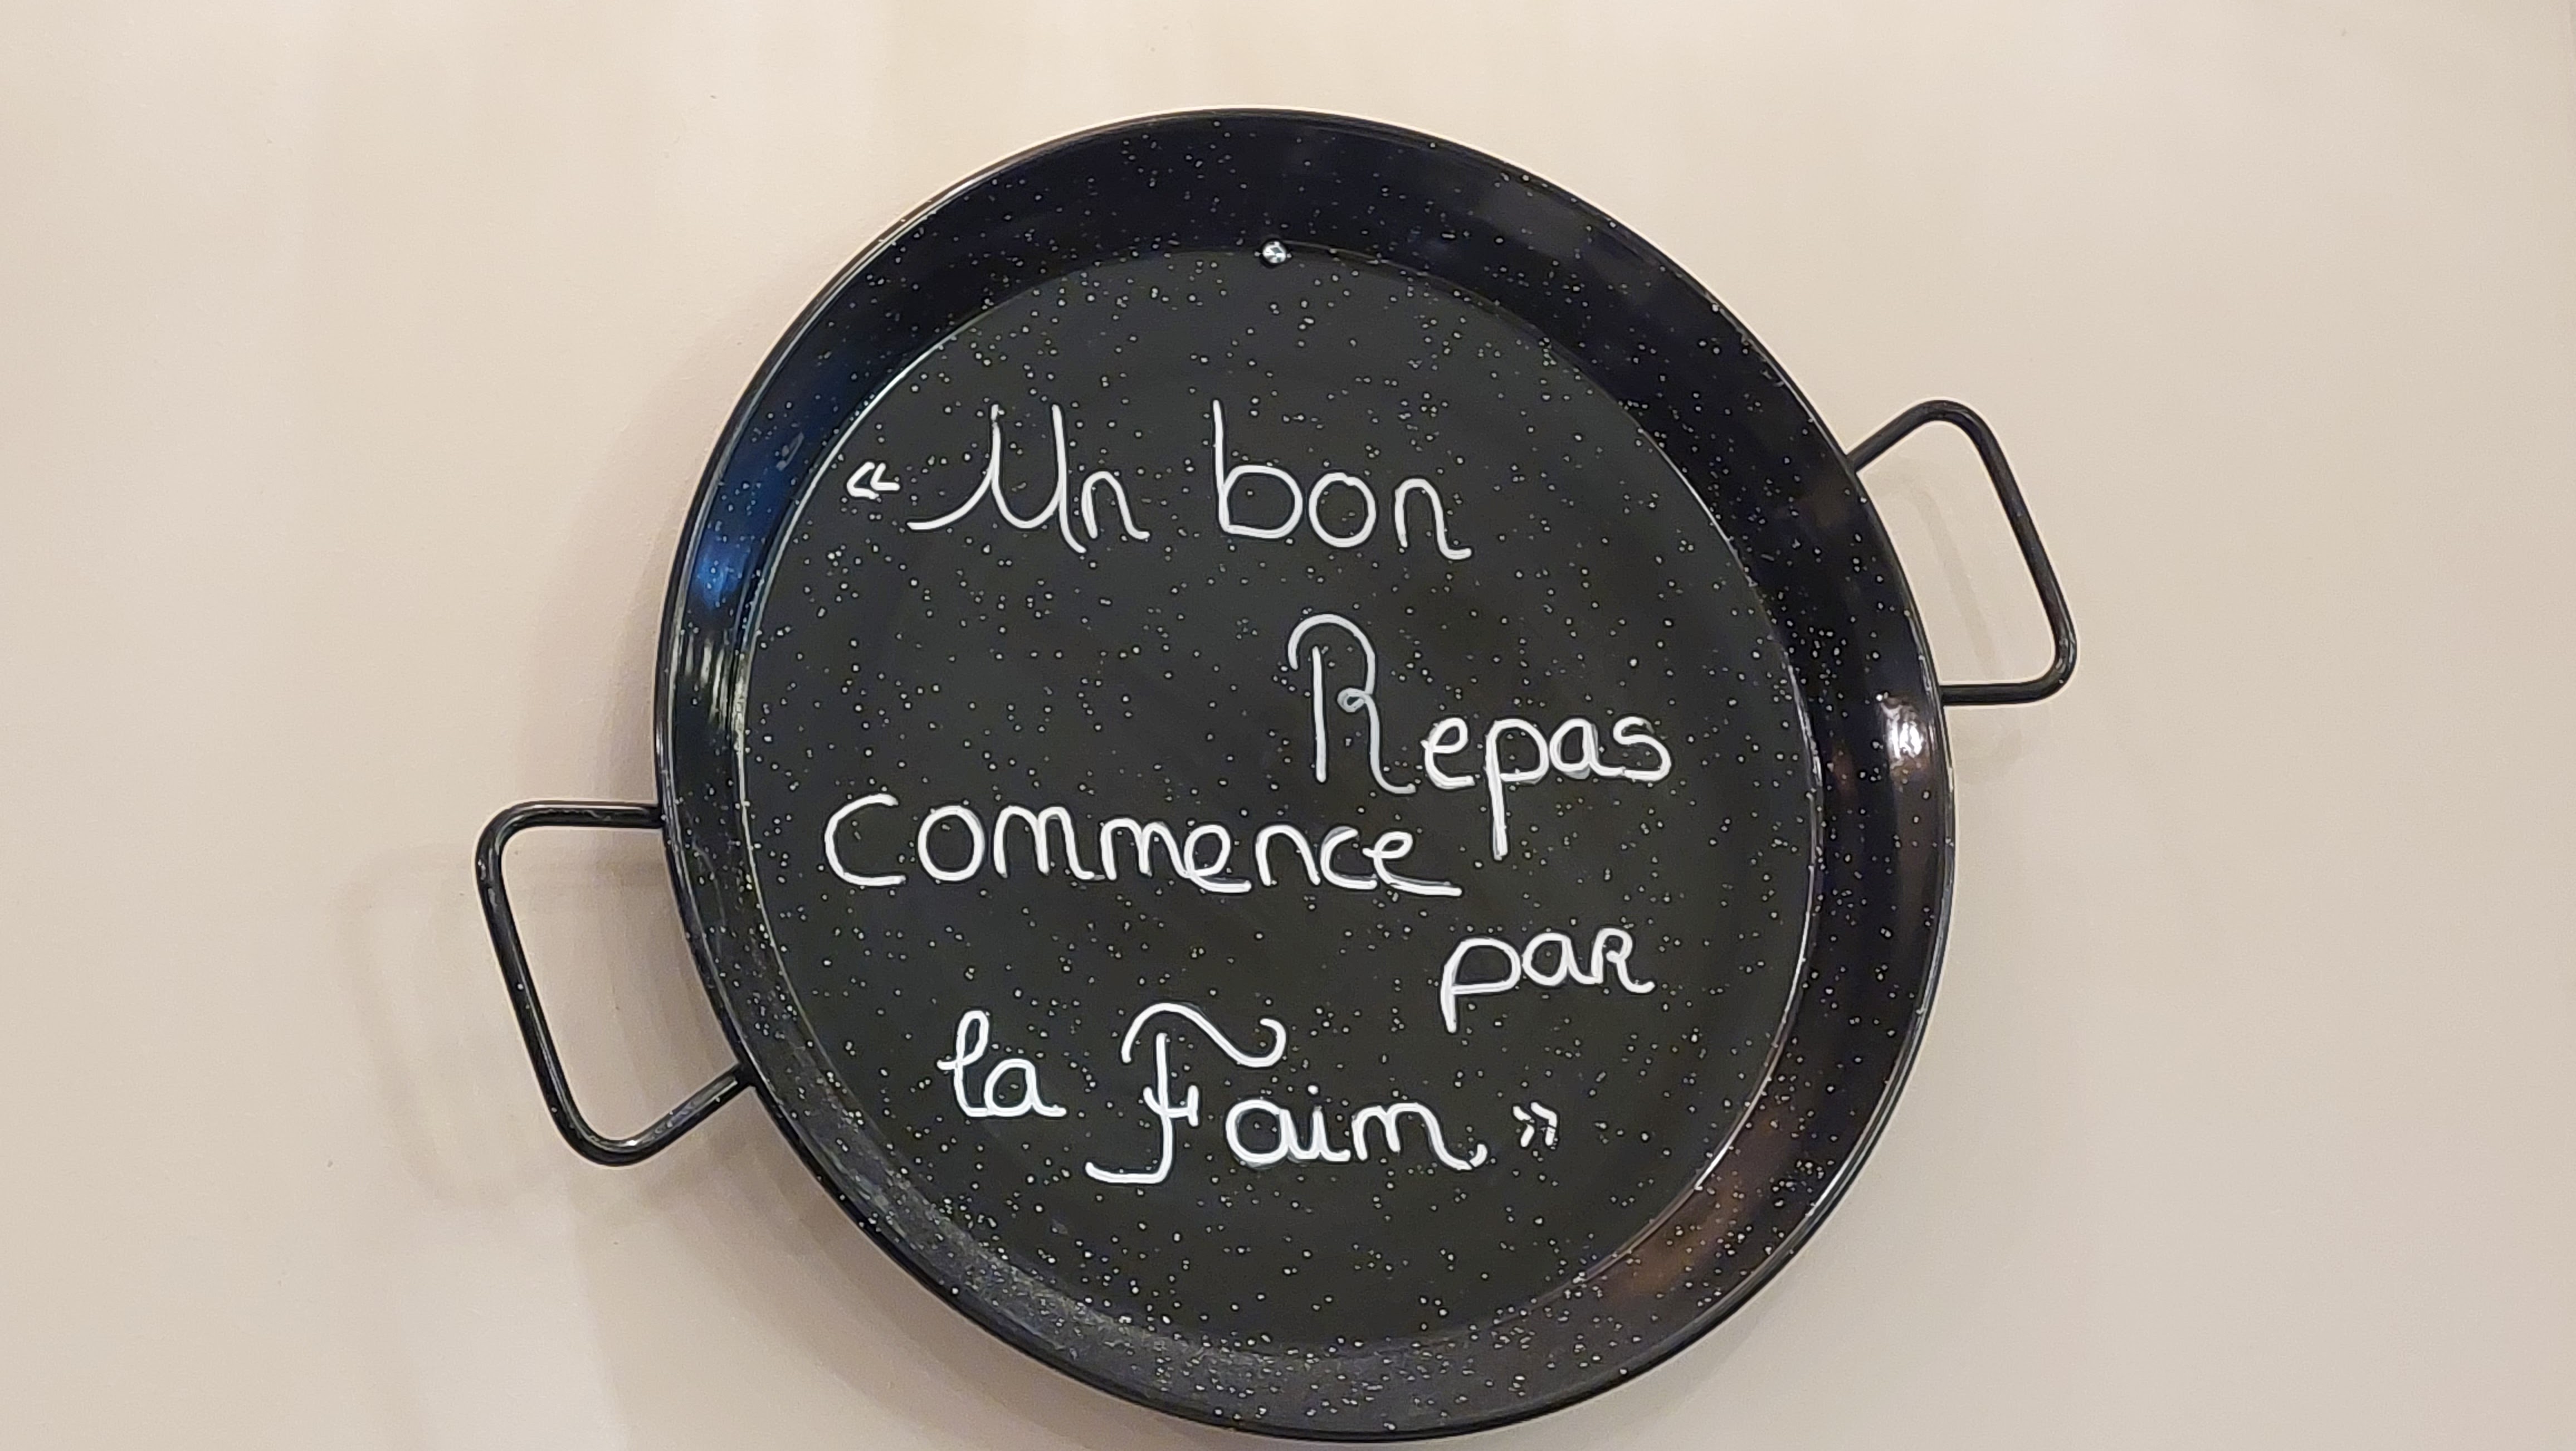 « Un bon
Repas
Commence
par
la Faim »